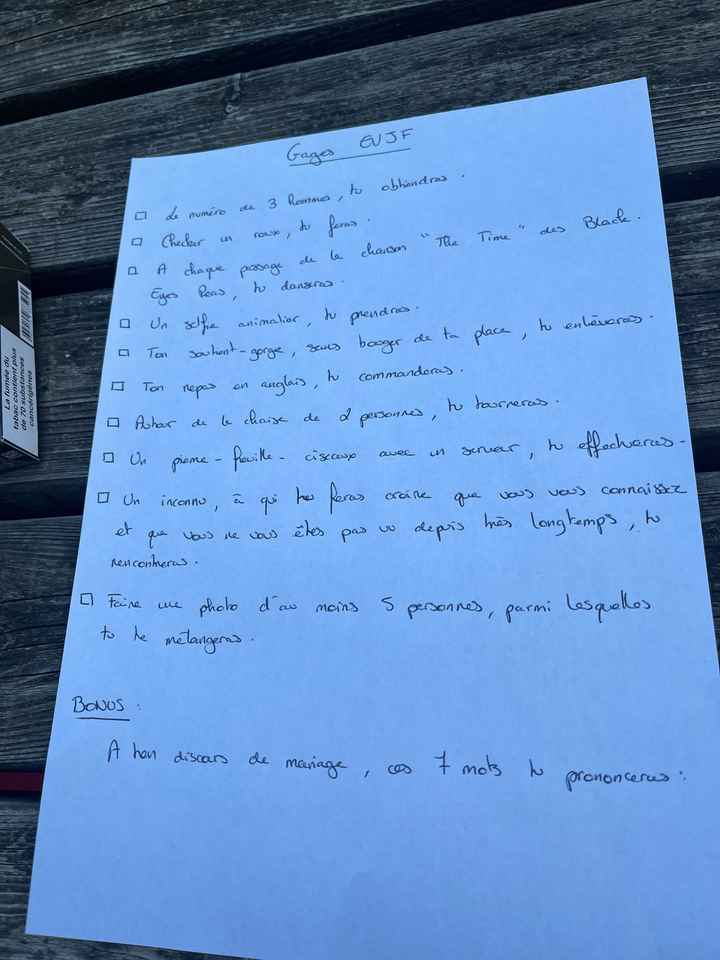 Gages EVJF
☐ Le numéro de 3 hommes, tu obtiendras.
☐ Checker un roux, tu feras.
☐ A chaque passage de la chanson "The Time" des Black
Eyes Peas, tu danseras.
☐ Un selfie animalier, tu prendras.
☐ Ton soutient-gorge, sans bouger de ta place, tu enlèveras.
☐ Ton repas en anglais, tu commanderas.
☐ Autour de la chaise de 2 personnes, tu tourneras.
☐ Un pierre-feuille-ciseaux avec un serveur, tu effectueras.
☐ Un inconnu, à qui tu feras croire que vous vous connaissez
et que vous ne vous êtes pas vu depuis très longtemps, tu
rencontreras.
☐ Faire une photo d'au moins 5 personnes, parmi lesquelles
tu te mélangeras.
BONUS :
A ton discours de mariage, ces 7 mots tu prononceras :
La fumée du
tabac contient plus
de 70 substances
cancérigènes